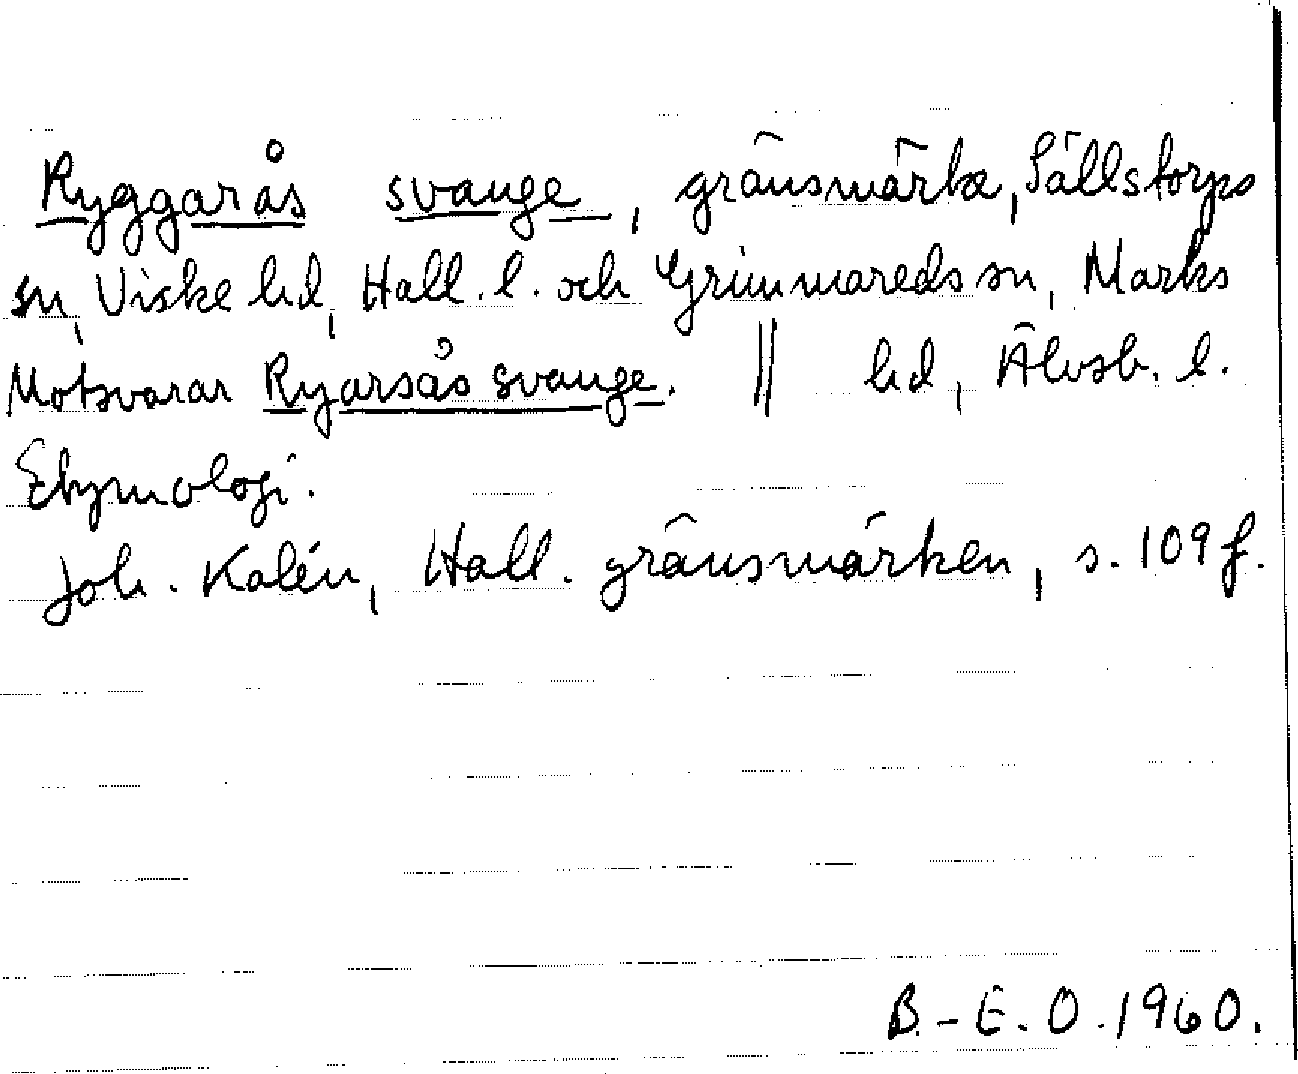 Ryggarås svange, gränsmärke, Sällstorps
sn, Viske hd, Hall. l. och Grimmareds sn, Marks
Motsvarar Ryarsås svange. || hd, Älvsb. l.
Etymologi.
Joh. Kalén, Hall. gränsmärken, s. 109 f.
B.-E. O. 1960.